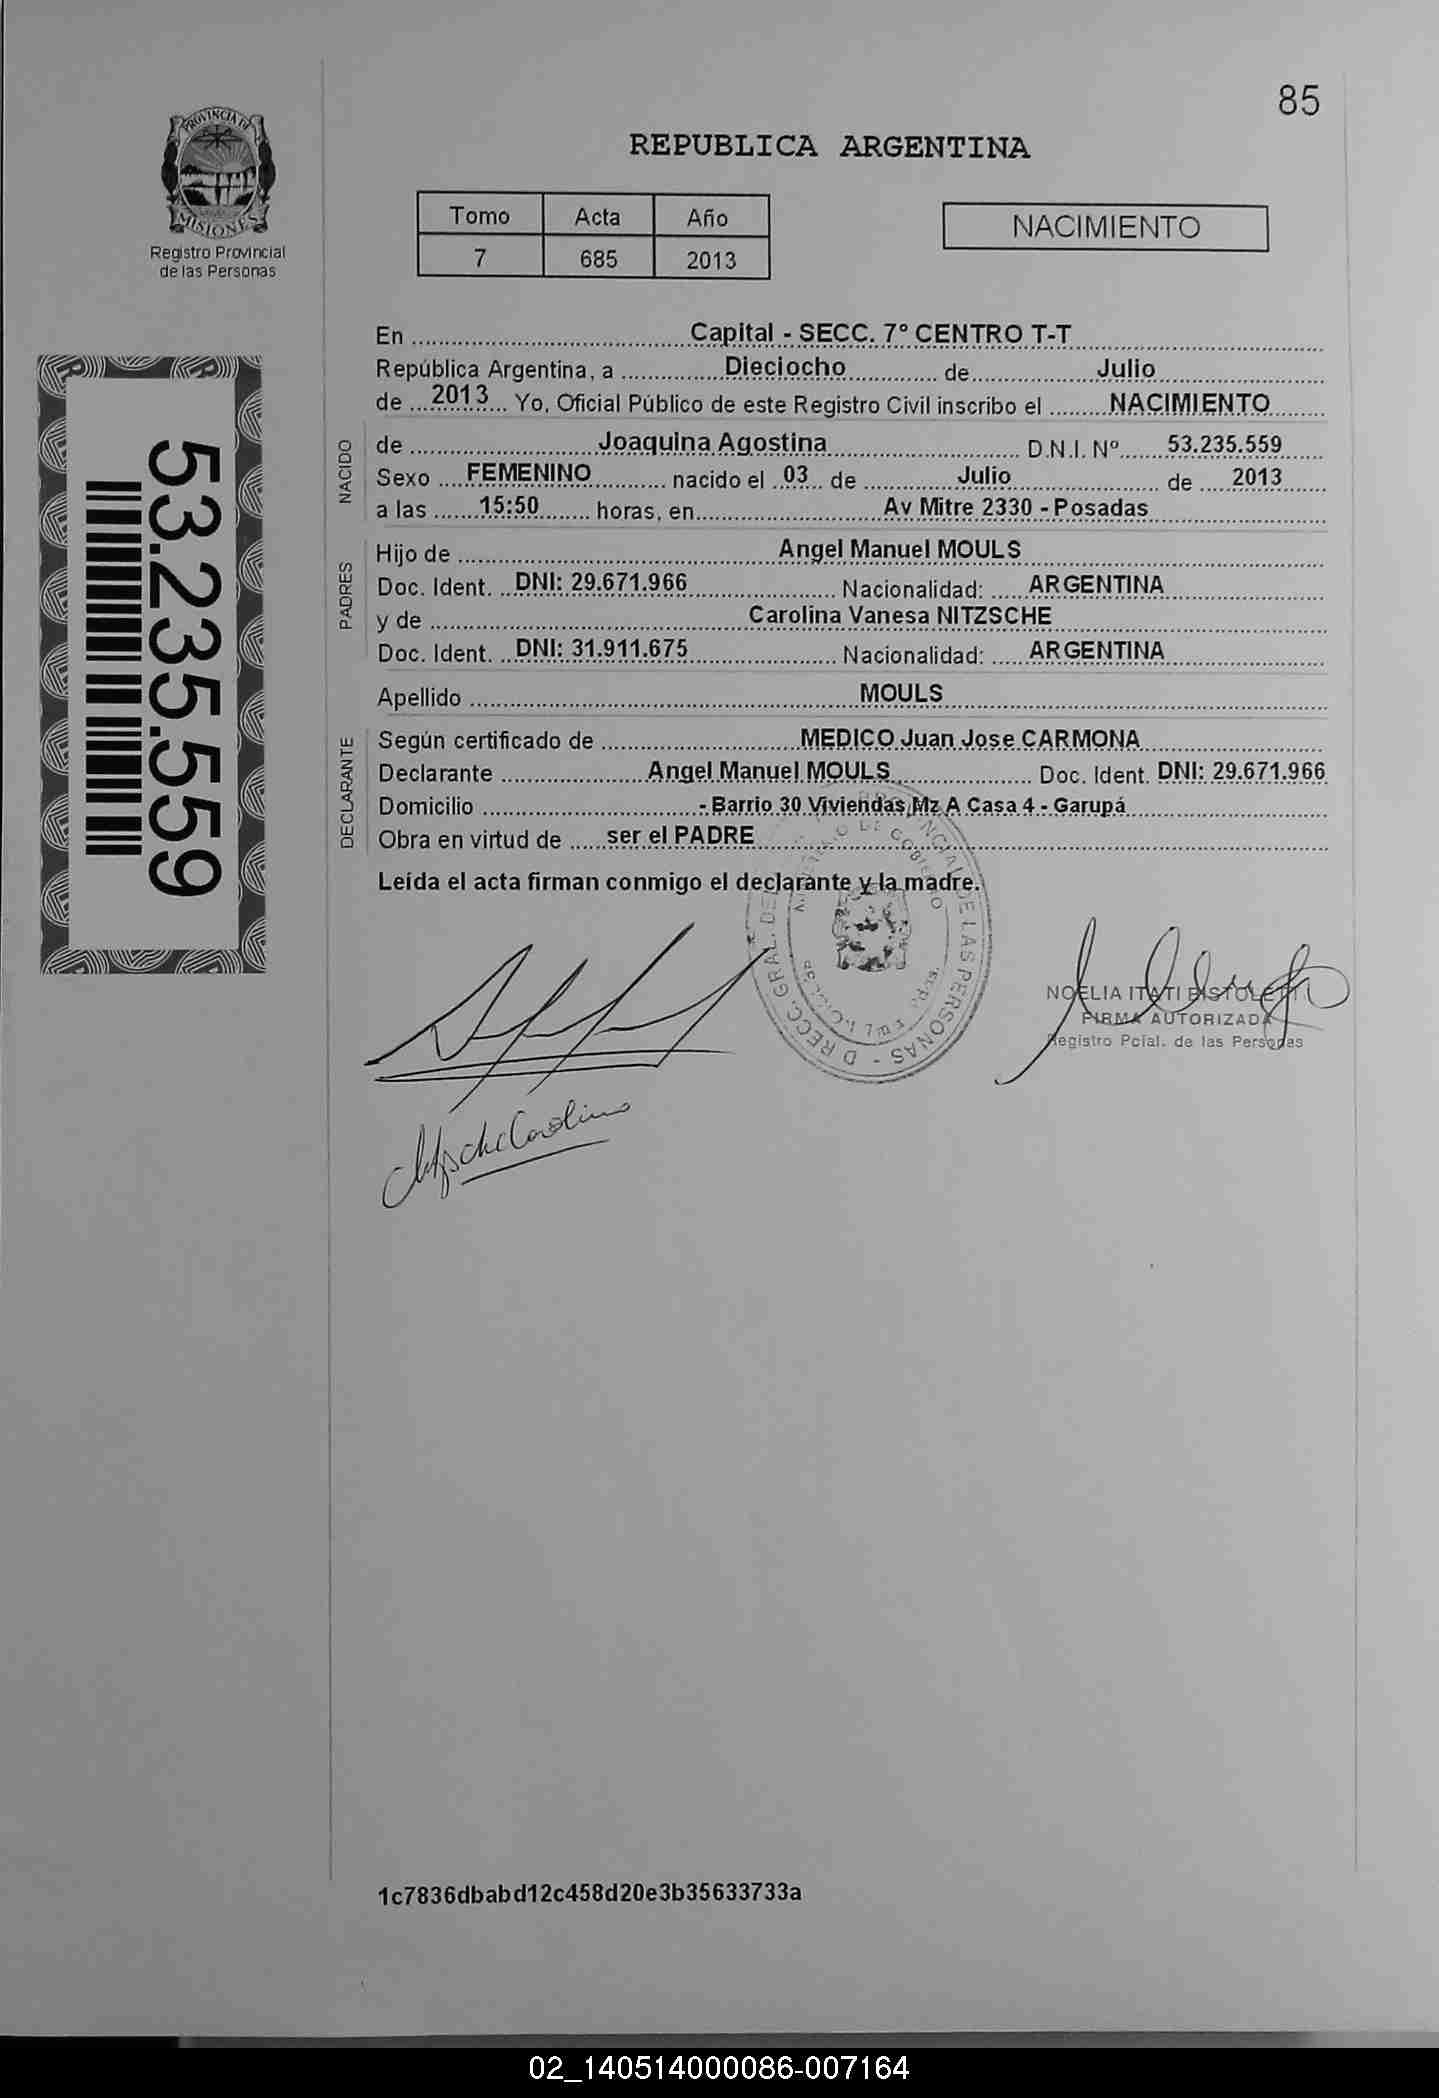 85
PROVINCIA DE
MISIONES
Registro Provincial
de las Personas
REPUBLICA ARGENTINA
Tomo Acta Año
7 685 2013
NACIMIENTO
53.235.559
En Capital - SECC. 7º CENTRO T-T
República Argentina, a Dieciocho de Julio
de 2013 Yo, Oficial Público de este Registro Civil inscribo el NACIMIENTO
NACIDO
de Joaquina Agostina D.N.I. Nº 53.235.559
Sexo FEMENINO nacido el 03 de Julio de 2013
a las 15:50 horas, en Av Mitre 2330 - Posadas
PADRES
Hijo de Angel Manuel MOULS
Doc. Ident. DNI: 29.671.966 Nacionalidad: ARGENTINA
y de Carolina Vanesa NITZSCHE
Doc. Ident. DNI: 31.911.675 Nacionalidad: ARGENTINA
Apellido MOULS
DECLARANTE
Según certificado de MEDICO Juan Jose CARMONA
Declarante Angel Manuel MOULS Doc. Ident. DNI: 29.671.966
Domicilio - Barrio 30 Viviendas Mz A Casa 4 - Garupá
Obra en virtud de ser el PADRE
Leída el acta firman conmigo el declarante y la madre.
DE LAS PERSONAS
NOELIA ITATI BISTOLETTI
FIRMA AUTORIZADA
Registro Pcial. de las Personas
Nitzsche Carolina
1c7836dbabd12c458d20e3b35633733a
02_140514000086-007164